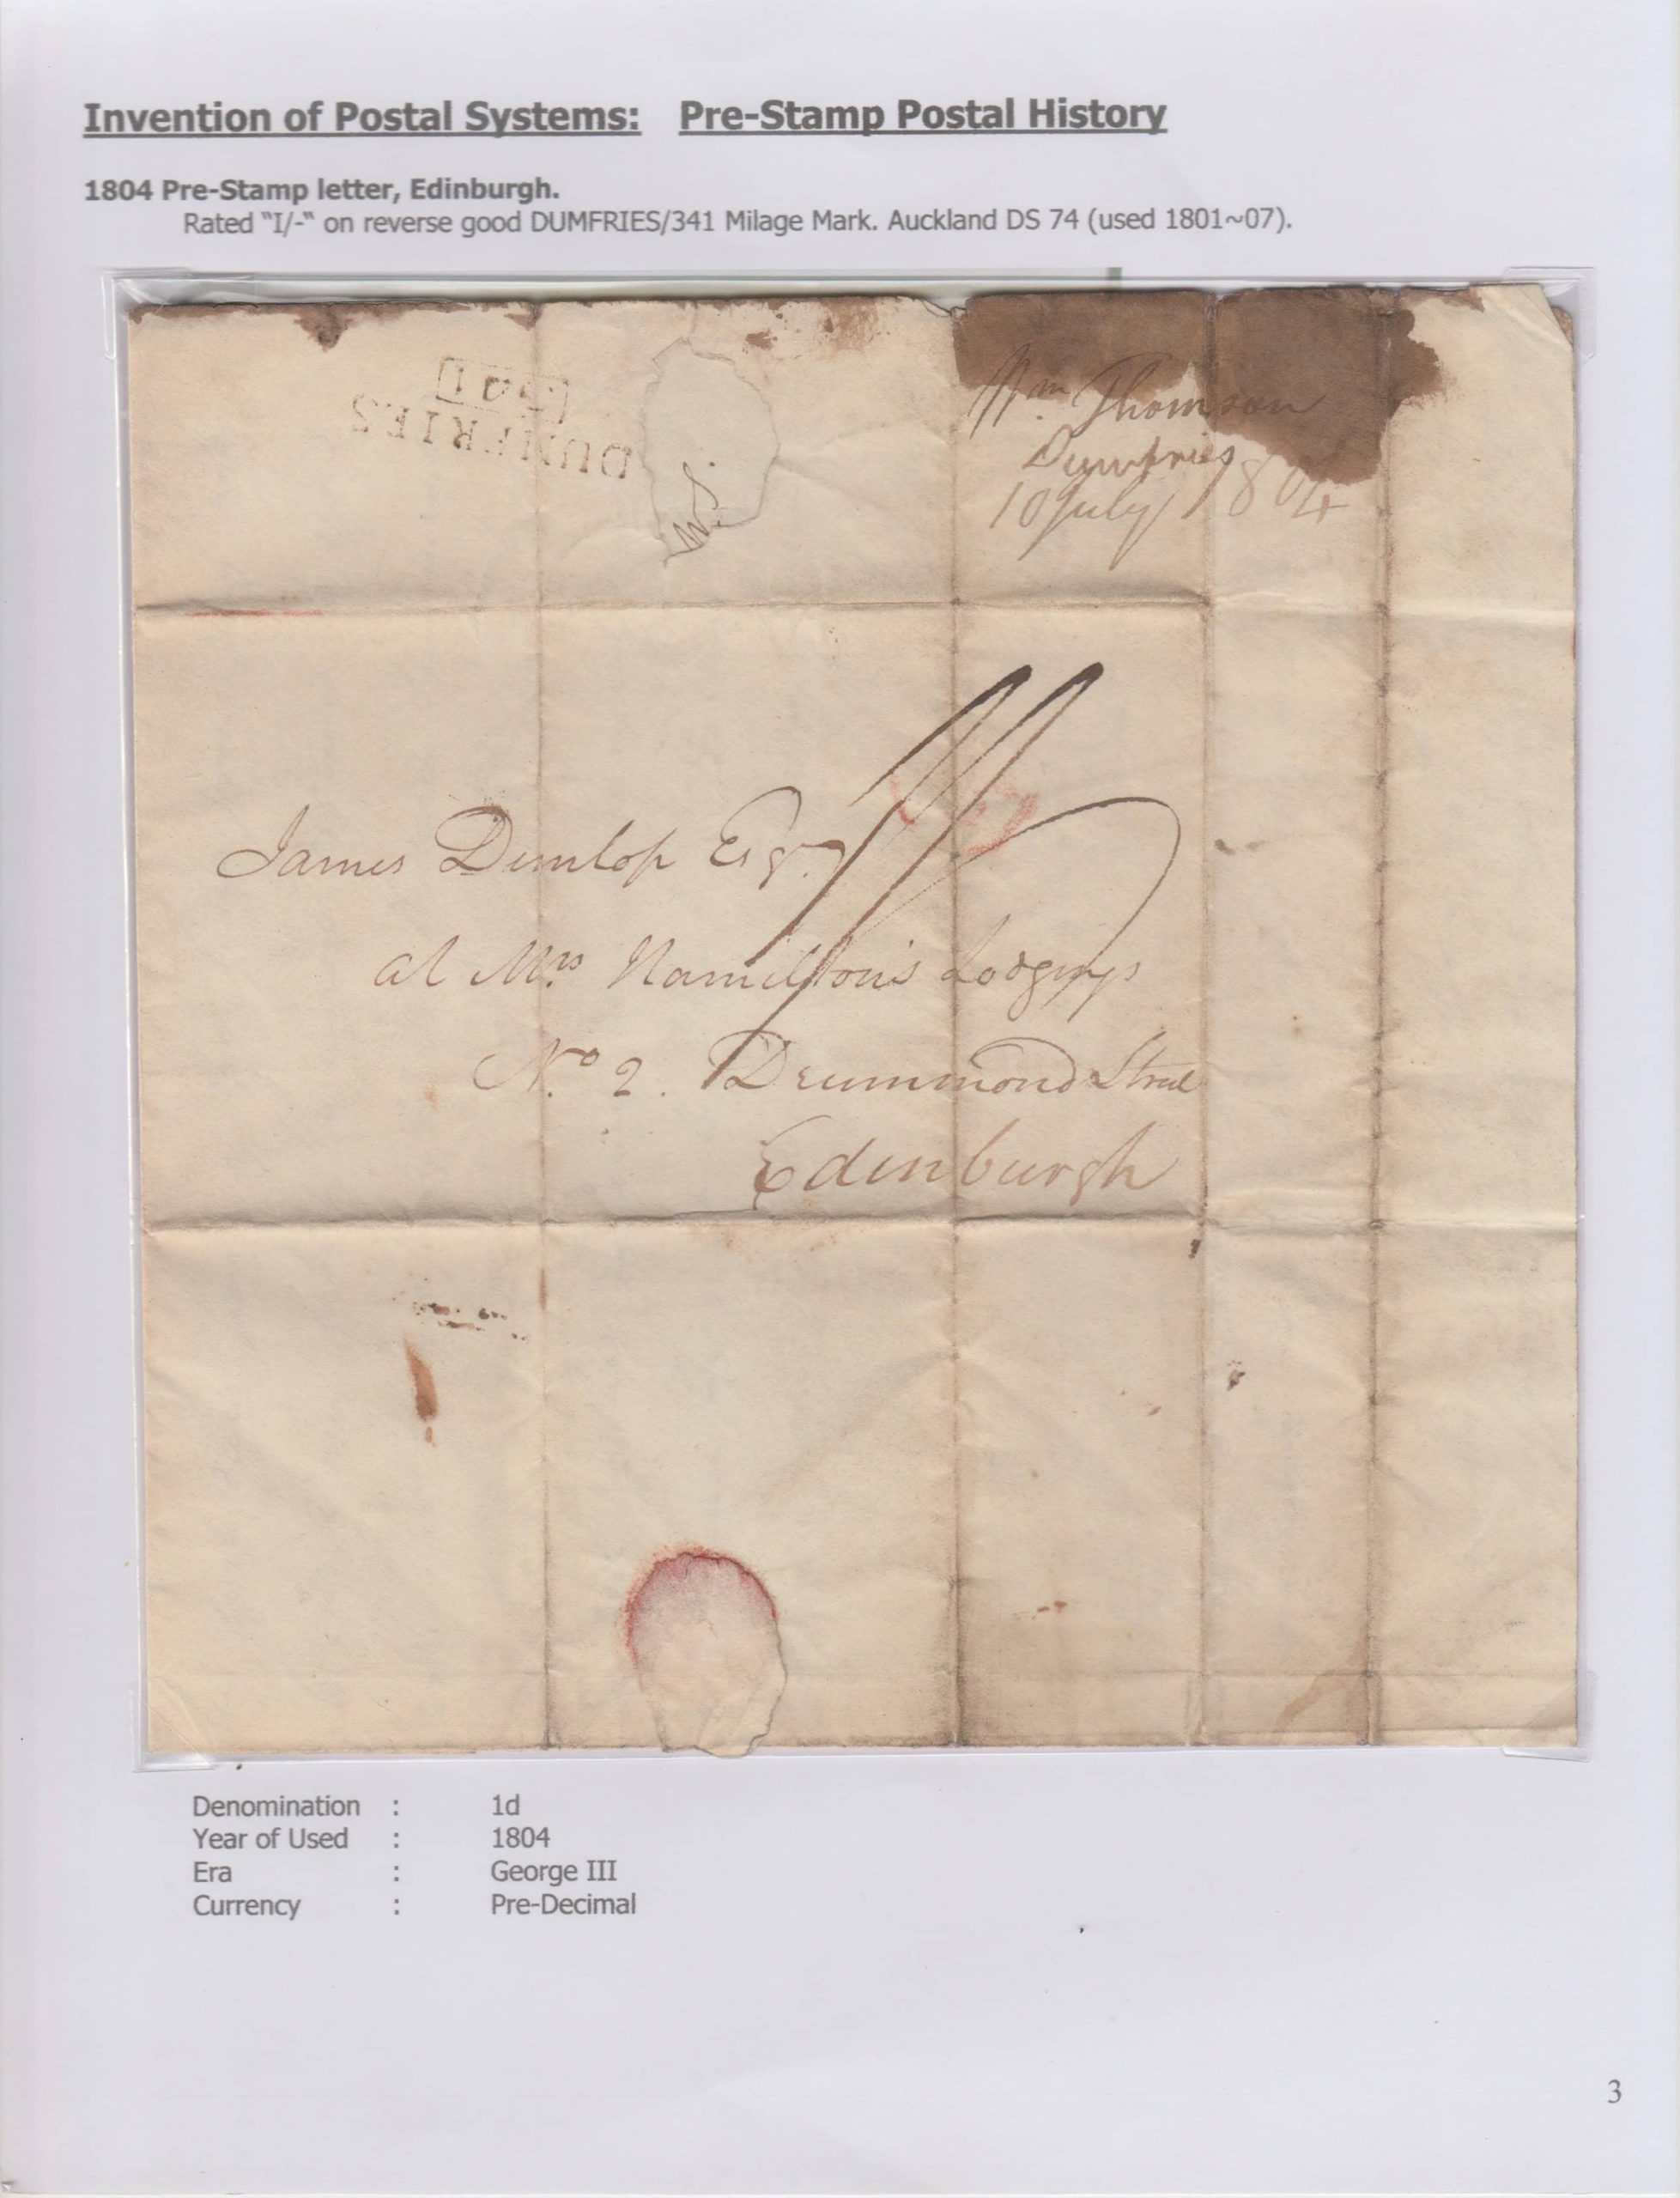 Invention of Postal Systems: Pre-Stamp Postal History
1804 Pre-Stamp letter, Edinburgh.
Rated "I/-" on reverse good DUMFRIES/341 Milage Mark. Auckland DS 74 (used 1801~07).
341
DUMFRIES
Wm Thomson
Dumfries
10 July 1804
James Dunlop Esqr.
at Mrs Hamilton's Lodgings
No 2. Drummond Street
Edinburgh
Denomination : 1d
Year of Used : 1804
Era : George III
Currency : Pre-Decimal
3